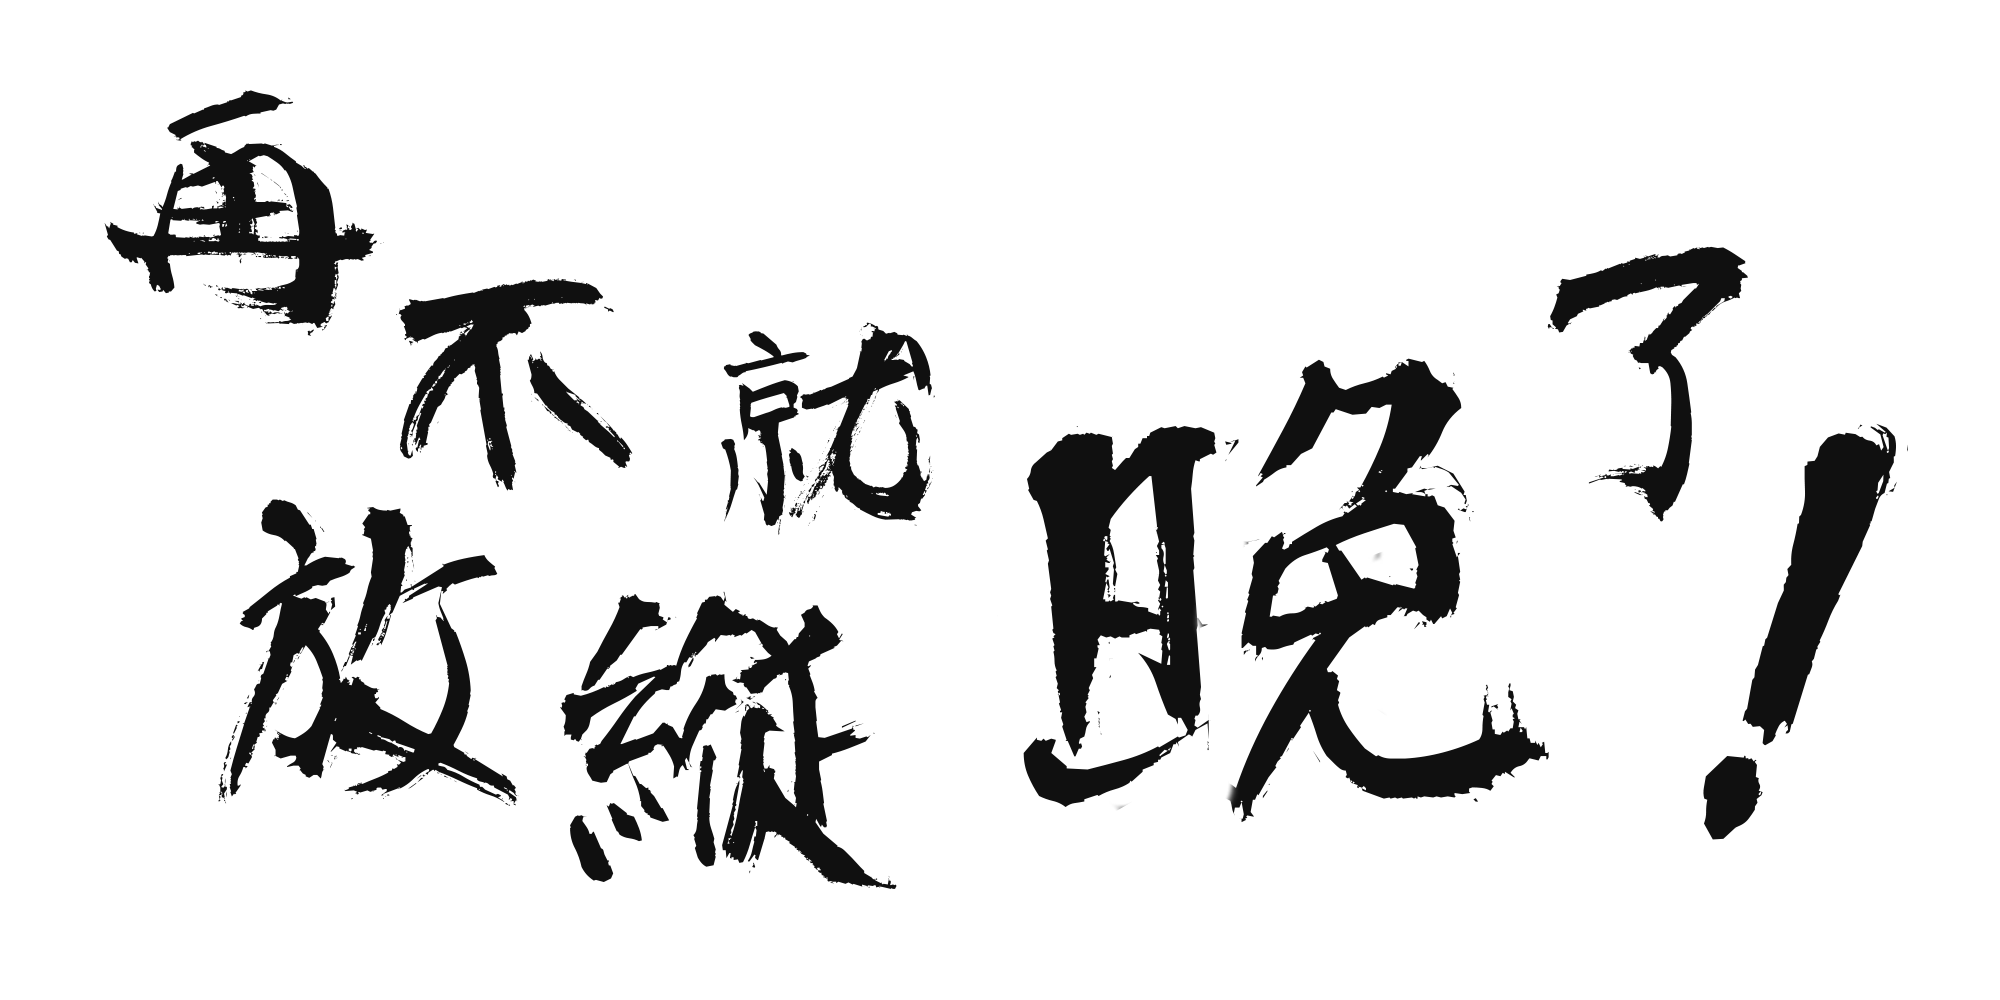 再不放縱
就晚了!